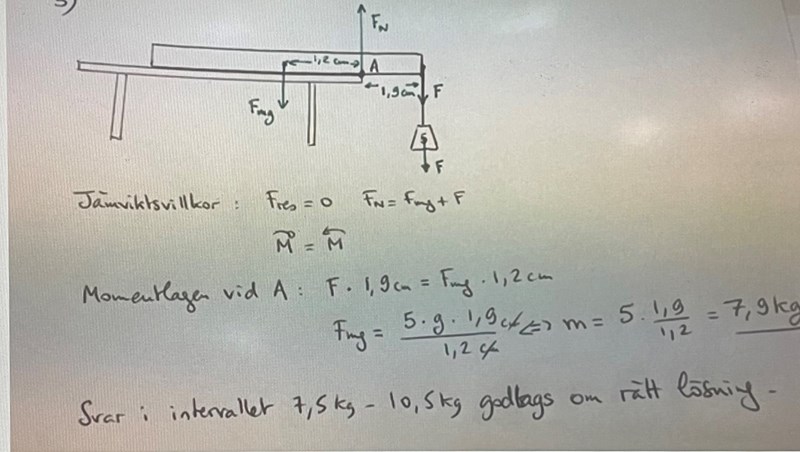 3)
F_N
1,2 cm
A
1,9 cm
F
F_mg
5
F
Jämviktsvillkor : F_res = 0 F_N = F_mg + F
M = M
Momentlagen vid A : F · 1,9 cm = F_mg · 1,2 cm
F_mg = 5 · g · 1,9 cm / 1,2 cm ⇔ m = 5 · 1,9 / 1,2 = 7,9 kg
Svar i intervallet 7,5 kg – 10,5 kg godtags om rätt lösning -